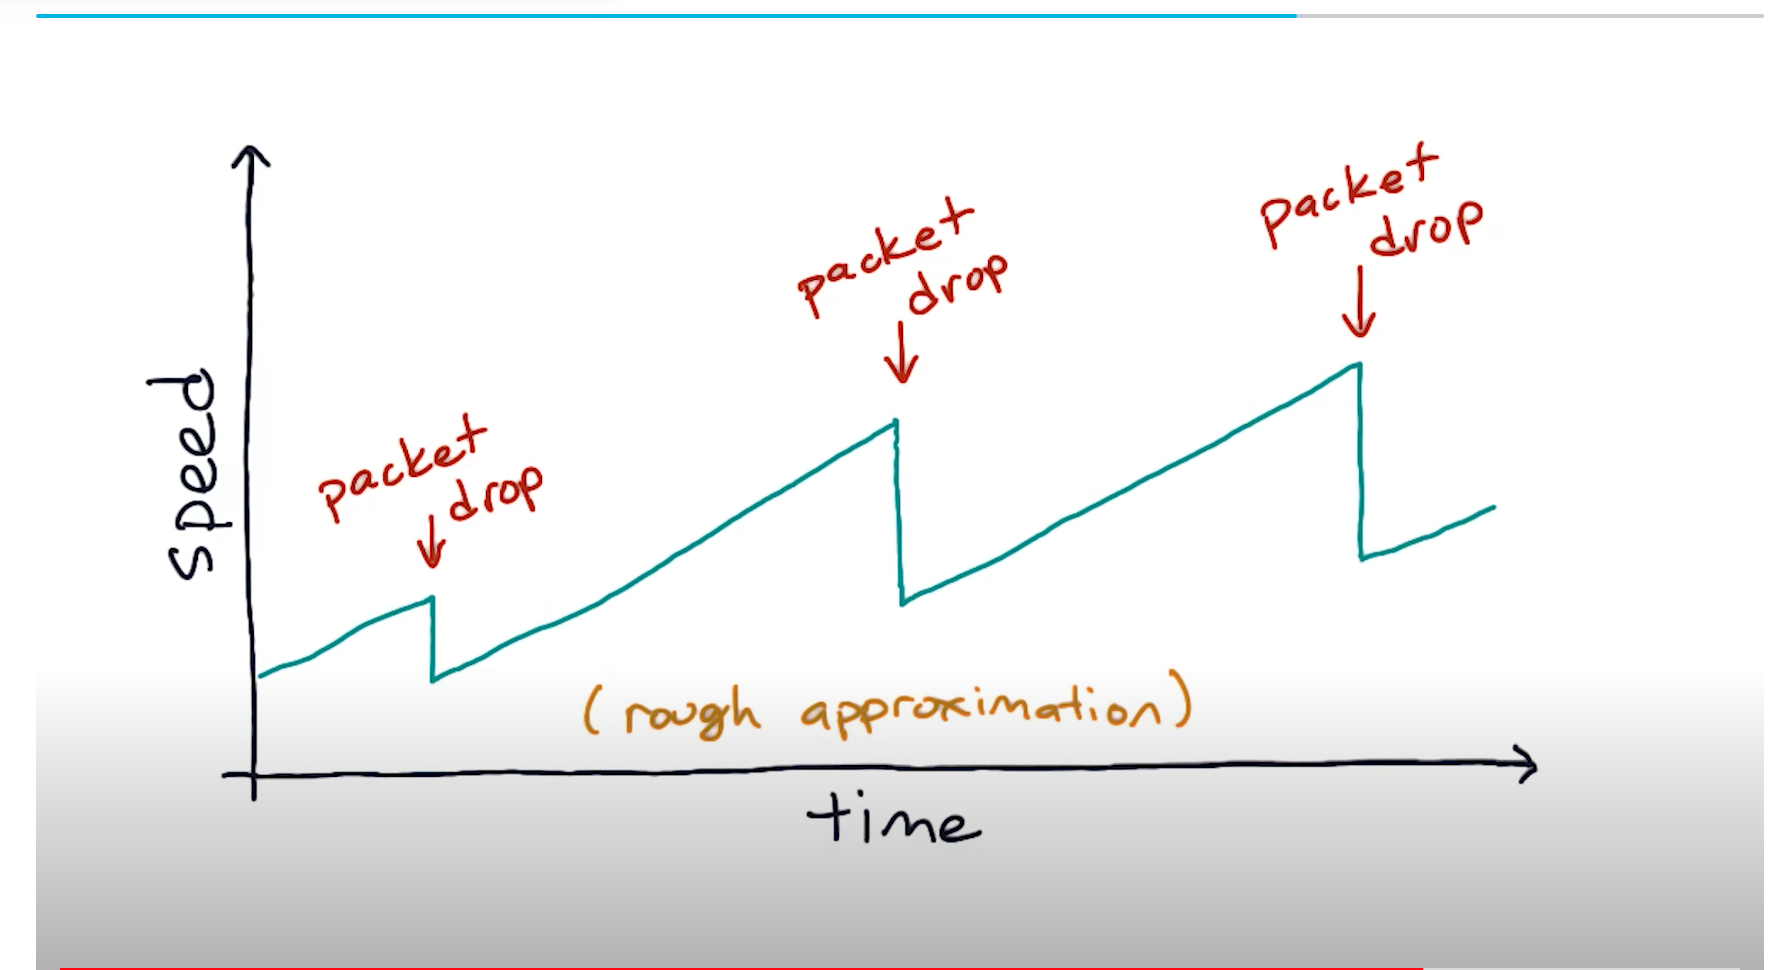 packet
drop
packet
drop
packet
drop
speed
(rough approximation)
time